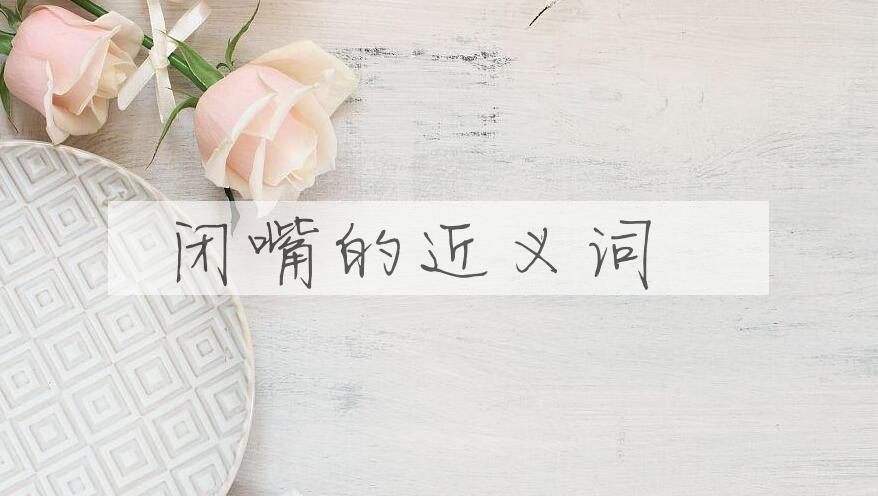 闭嘴的近义词